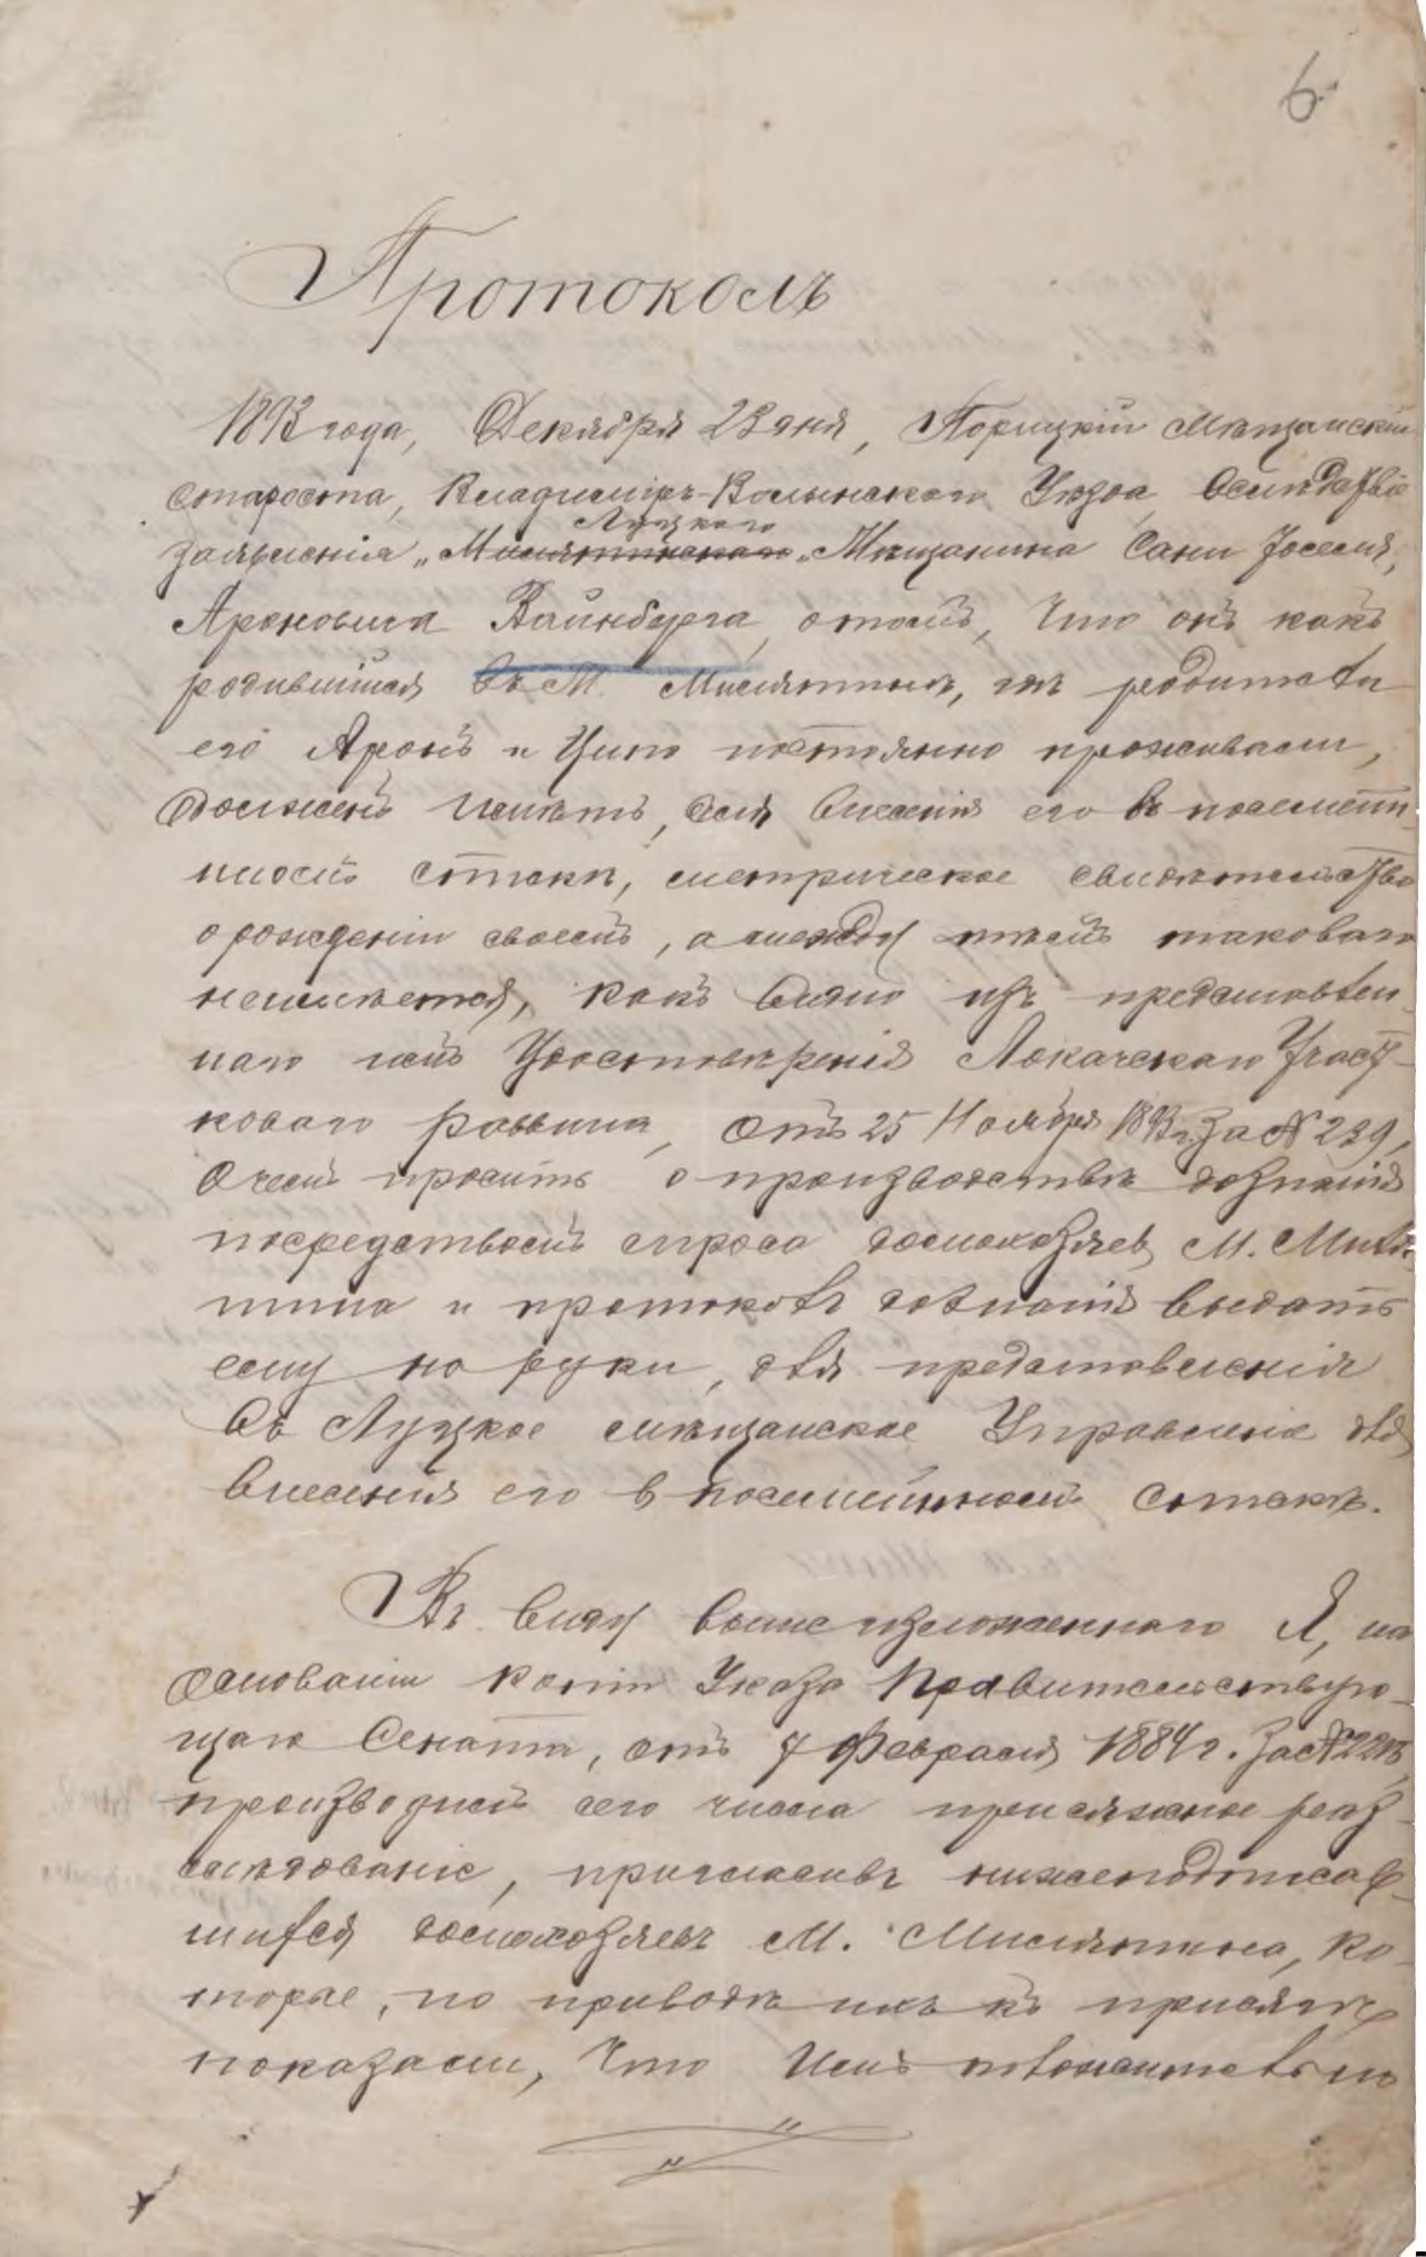 6
Протоколъ
1893 года, Декабря 23 дня, Порицкій Мѣщанскій
староста, Владимiръ-Волынскаго Уѣзда,
заявленія „Милятинскаго„ Луцкаго Мѣщанина Сани Іоселя,
Ароновича Вайнберга, отомъ, что онъ какъ
родившійся въ М. Милятинѣ, гдѣ родители
его Аронъ и Ципа постоянно проживали,
долженъ имѣть, для внесенія его въ посемей-
номъ списки, метрическое свидѣтельство
о рожденіи своемъ, а между тѣмъ таковаго
неимѣется, какъ видно изъ представлен-
наго имъ Удостовѣренія Локачскаго Участ-
коваго Раввина, отъ 25 Ноября 1893 г. За № 239,
О чемъ проситъ о производствѣ дознанія
посредствомъ спроса домохозяевъ М. Миля-
тина и протоколъ дознанія выдать
ему на руки, для представленія
въ Луцкое мѣщанское Управленіе для
внесенія его в посемейномъ спискѣ.
Въ виду выше изложеннаго Я, на
основаніи копіи Указа Правительствую-
щаго Сената, отъ 7 Февраля 1884 г. За №
производилъ сего числа присяжное раз-
слѣдованіе, пригласивъ нижеподписав-
шихся домохозяевъ М. Милятина, ко-
торые, по приводѣ ихъ къ присягѣ
показали, что Имъ положительно